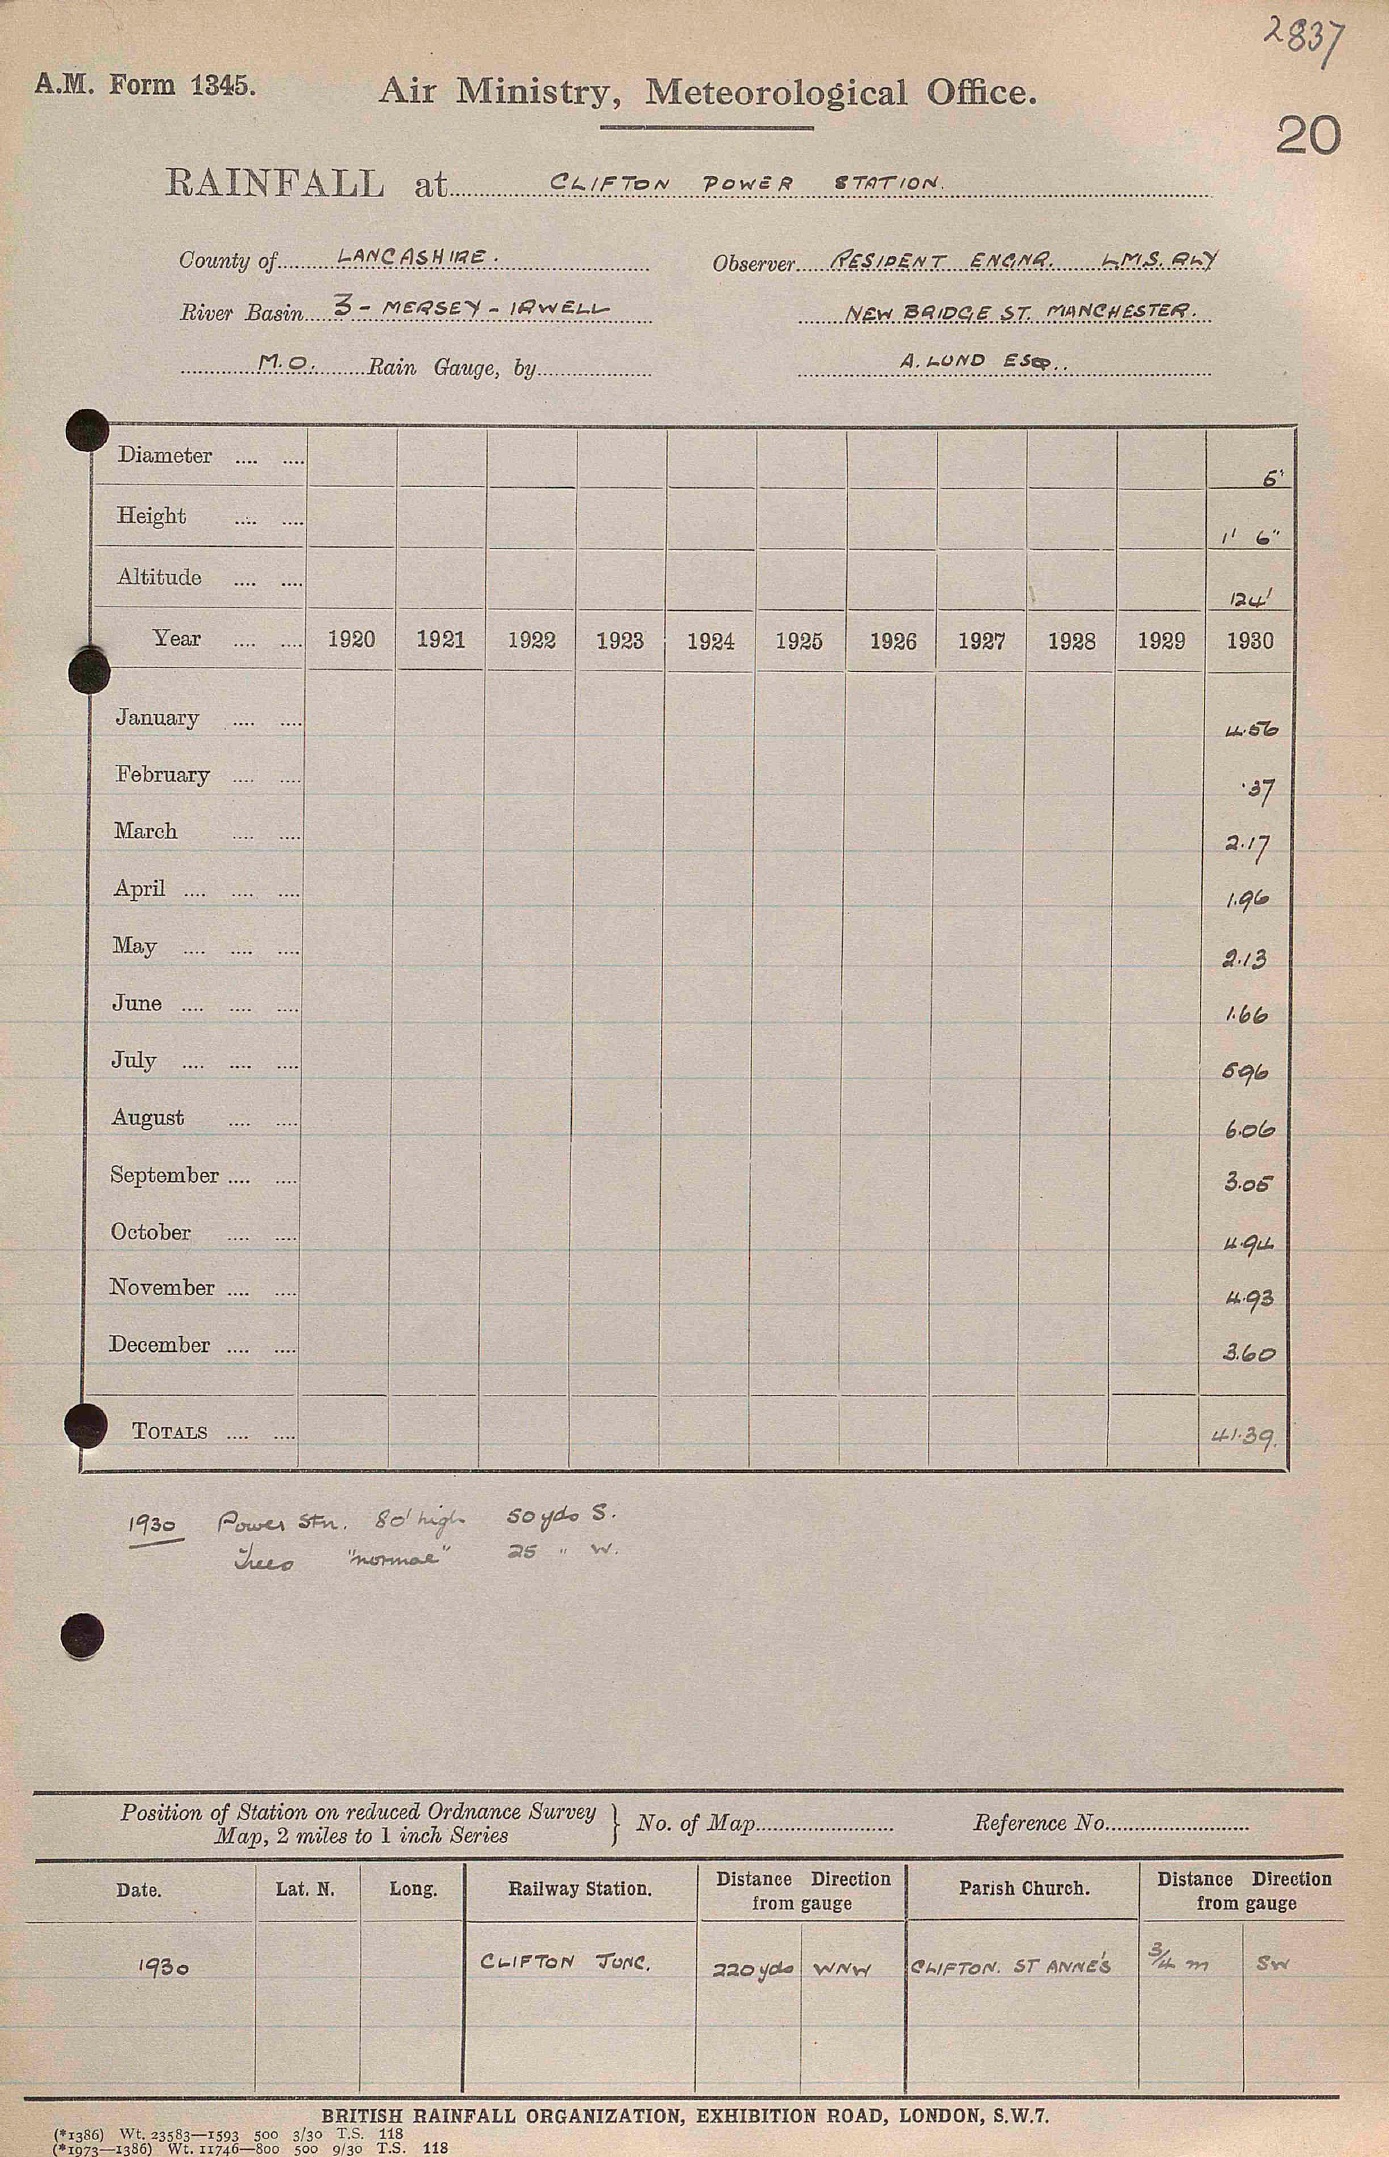 2837
A.M. Form 1345. Air Ministry, Meteorological Office.
20
RAINFALL at CLIFTON POWER STATION.
County of LANCASHIRE. Observer RESIDENT ENGNR. L.M.S. RLY
River Basin 3 - MERSEY - IRWELL NEW BRIDGE ST. MANCHESTER.
M.O. Rain Gauge, by A. LUND ESQ..
Diameter .... .... 5"
Height .... .... 1' 6"
Altitude .... .... 124'
Year .... .... 1920 1921 1922 1923 1924 1925 1926 1927 1928 1929 1930
January .... .... 4.56
February .... .... .37
March .... .... 2.17
April .... .... .... 1.96
May .... .... .... 2.13
June .... .... .... 1.66
July .... .... .... 596
August .... .... 6.06
September .... .... 3.05
October .... .... 4.94
November .... .... 4.93
December .... .... 3.60
TOTALS .... .... 41.39.
1930 Power Stn. 80' high 50 yds S.
Trees "normal" 25 " W.
Position of Station on reduced Ordnance Survey
Map, 2 miles to 1 inch Series } No. of Map Reference No.
Date. Lat. N. Long. Railway Station. Distance Direction from gauge Parish Church. Distance Direction from gauge
1930 CLIFTON JUNC. 220 yds WNW CLIFTON. ST ANNE'S 3/4 m SW
BRITISH RAINFALL ORGANIZATION, EXHIBITION ROAD, LONDON, S.W.7.
(*1386) Wt. 23583—1593 500 3/30 T.S. 118
(*1973—1386) Wt. 11746—800 500 9/30 T.S. 118